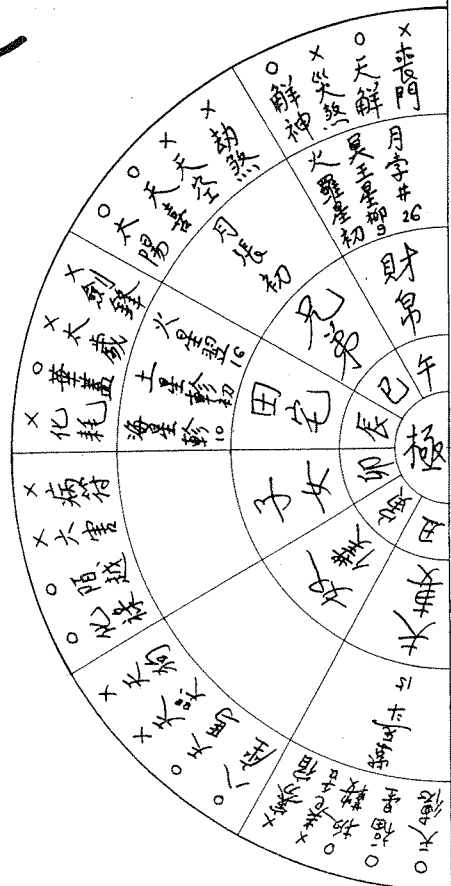 × 喪門
○ 天解
× 災煞
○ 解神
月孛井26
冥王星柳9
火羅星初
財帛
午
× 劫煞
× 天空
○ 天喜
○ 太陽
月張初
兄弟
巳
× 劍鋒
× 太歲
○ 華蓋
× 化耗
火星翌16
土星軫初
海星軫10
田宅
辰
極
× 病符
× 六害
○ 陌越
○ 化祿
子女
卯
× 天狗
× 天哭
○ 天馬
○ 八座
奴僕
寅
夫妻
丑
斗15
○ 福星
○ 天德